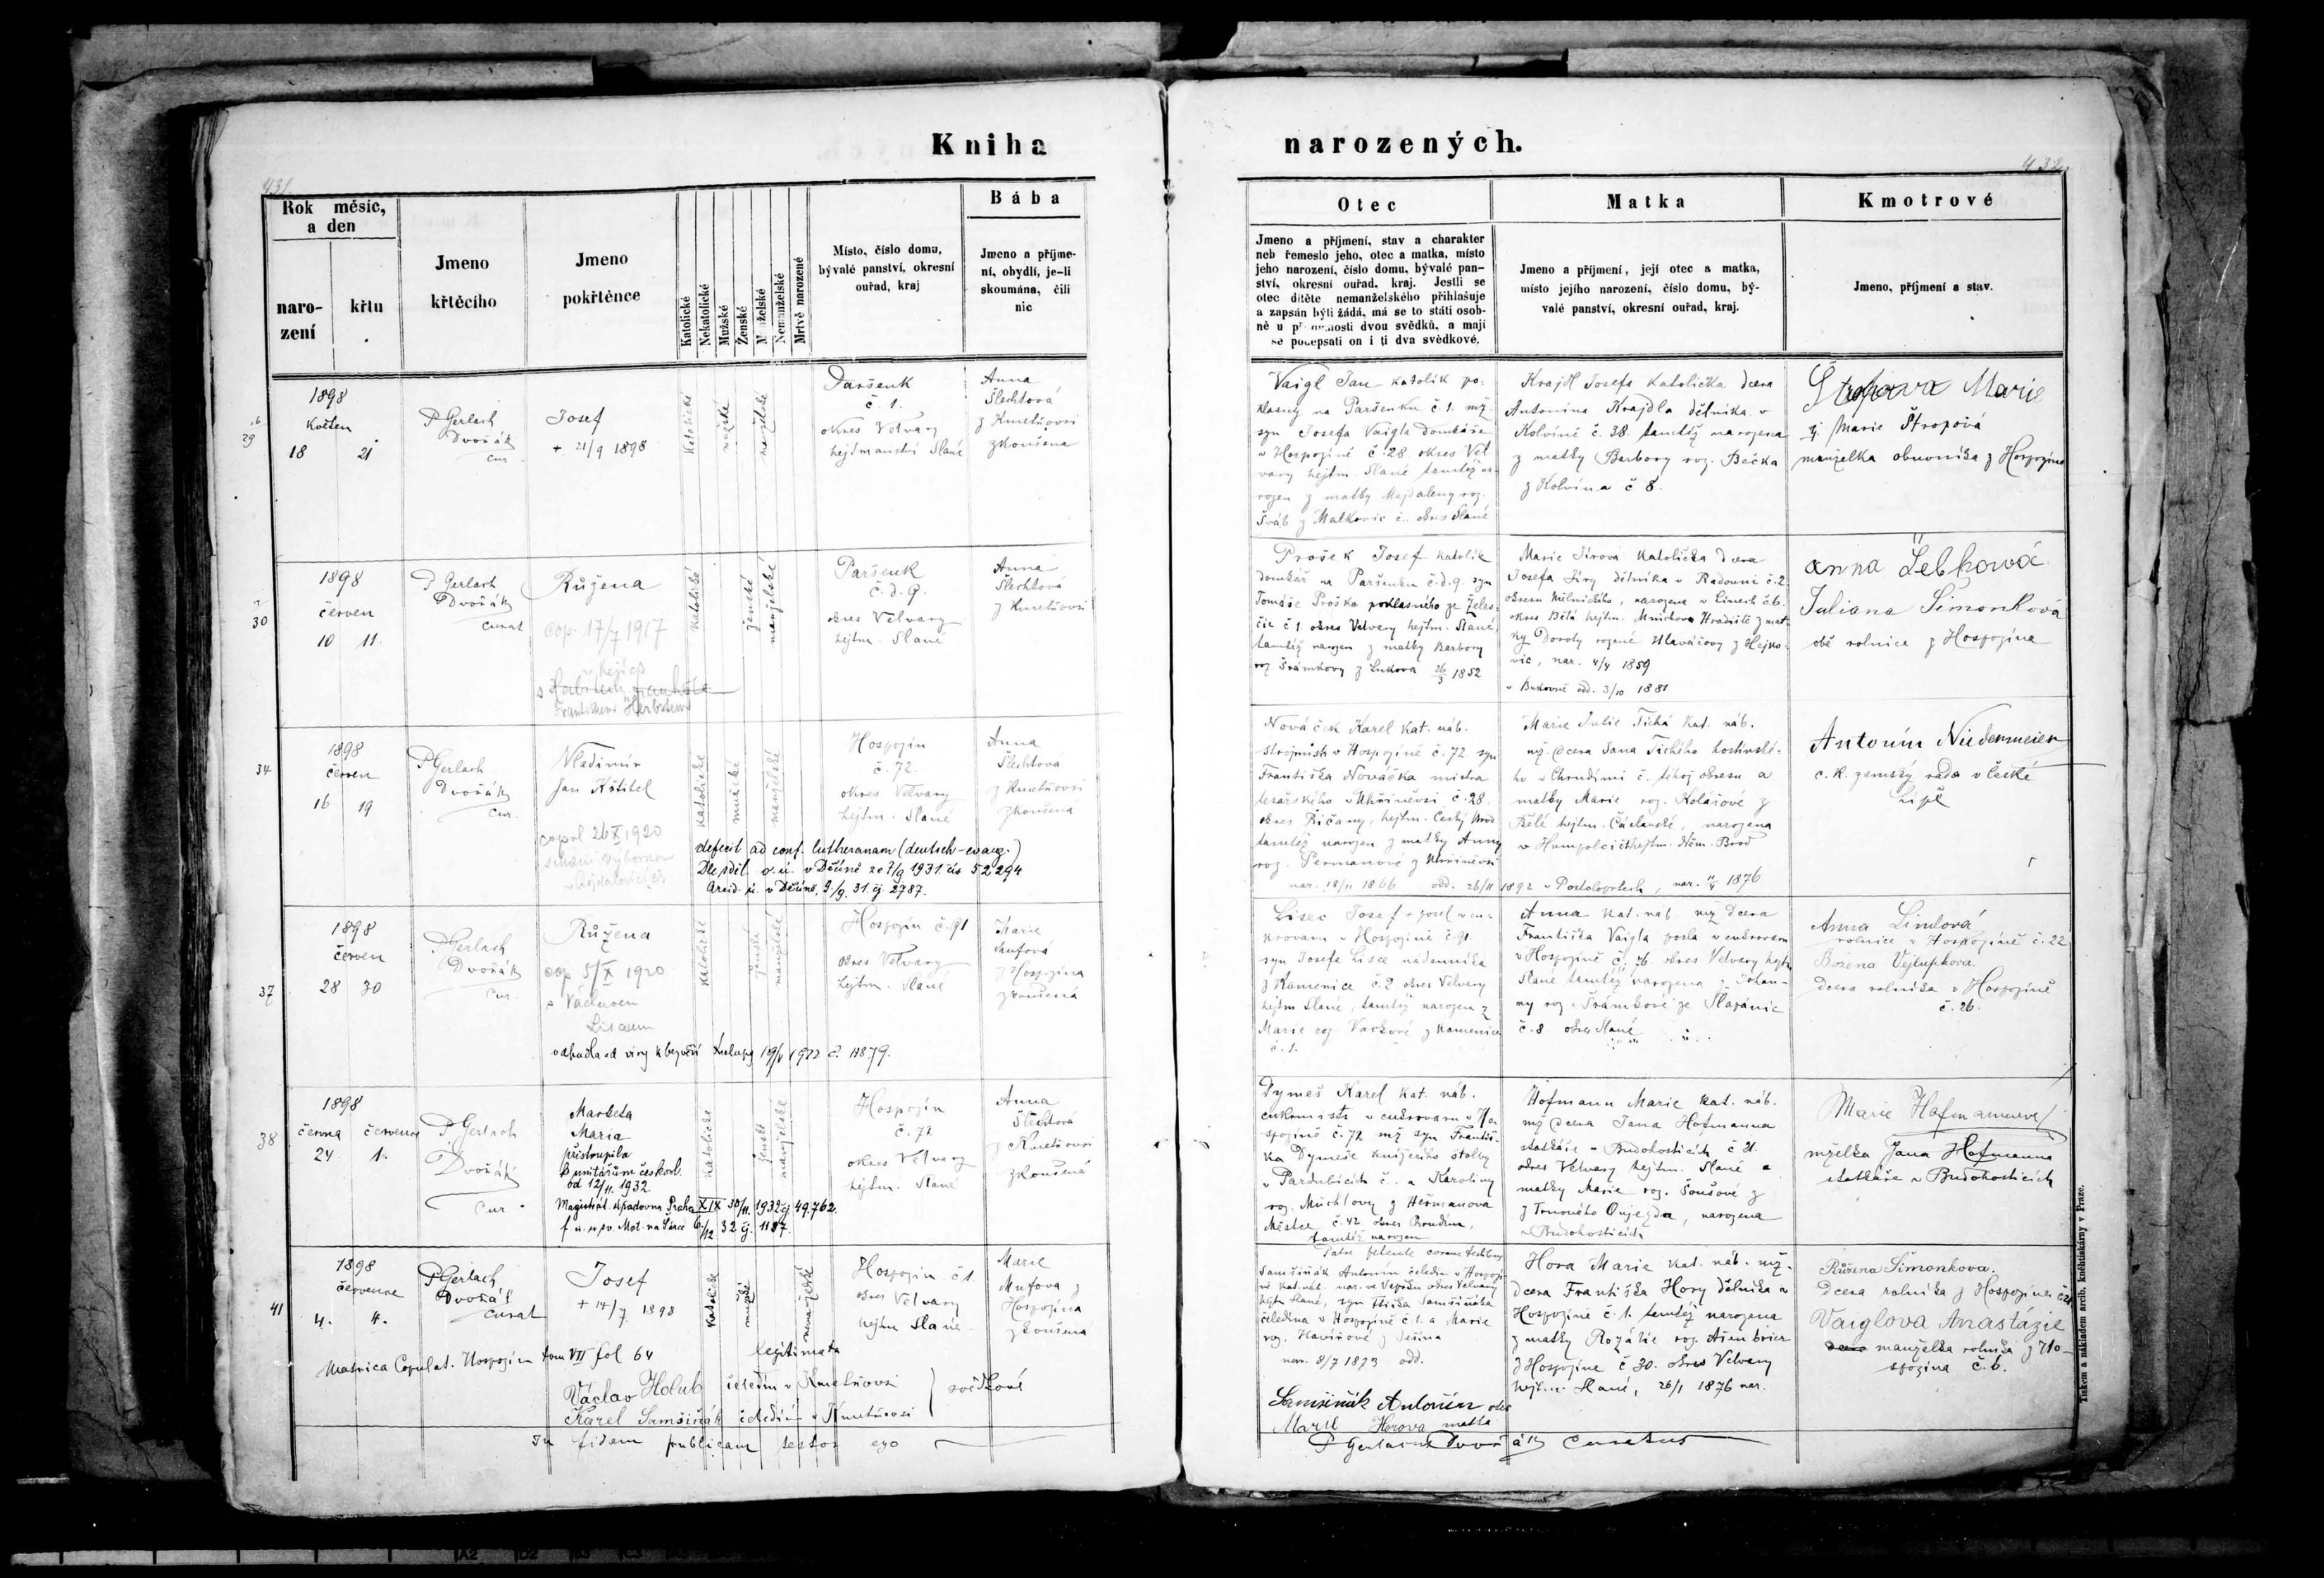 Kniha narozených.
431
432
Rok měsíc,
a den
naro-
zení
křtu
Jmeno
křtěcího
Jmeno
pokřtěnce
Katolické
Nekatolické
Mužské
Ženské
Manželské
Nemanželské
Mrtvě narozené
Místo, číslo domu,
bývalé panství, okresní
ouřad, kraj
Bába
Jmeno a příjme-
ní, obydlí, je-li
skoumána, čili
nic
Otec
Jmeno a příjmení, stav a charakter
neb řemeslo jeho, otec a matka, místo
jeho narození, číslo domu, bývalé pan-
ství, okresní ouřad, kraj. Jestli se
otec dítěte nemanželského přihlašuje
a zapsán býti žádá, má se to státi osob-
ně u přítomnosti dvou svědků, a mají
se podepsati on i ti dva svědkové.
Matka
Jmeno a příjmení, její otec a matka,
místo jejího narození, číslo domu, bý-
valé panství, okresní ouřad, kraj.
Kmotrové
Jmeno, příjmení a stav.
29
1898
Květen
18 21
P Gerlach
Dvořák
cur.
Josef
+ 21/9 1898
katolické
mužské
manželské
Paršenk
č. 1.
okres Velvary
hejtmanství Slané
Anna
Šlechtová
z Kmetňovsi
zkoušena
Vaigl Jan katolík po-
klasný na Paršenku č. 1. mž.
syn Josefa Vaigla domkáře
v Hospozíně č. 28 okres Vel
vary hejtm. Slané tamtéž na
rozen z matky Majdaleny roz.
Šváb z Malkovic č. okres Slané
Krajdl Josefa katolička dcera
Antonína Krajdla dělníka v
Kolvíně č. 38. tamtéž narozena
z matky Barbory roz. Bečka
z Kolvína č 8.
Štropova Marie
tj. Marie Štropová
manželka obuvníka z Hospozína
30
1898
červen
10 11.
P Gerlach
Dvořák
curat
Růžena
cop. 17/7 1917
Františkem Herbstem
katolické
ženské
manželské
Paršenk
č. d. 9.
okres Velvary
hejtm. Slané
Anna
Šlechtová
z Kmetňovsi
Prošek Josef katolík
domkář na Paršenku č. d. 9. syn
Tomáše Proška poklasného ze Želev
čic č 1 okres Velvary hejtm. Slané
tamtéž narozen z matky Barbory
roz Šrámkovy z Lukova 26/3 1852
Marie Jírová katolička dcera
Josefa Jíry dělníka v Radouni č. 2.
okresu Mělnického, narozena v Línech č. 6.
okres Bělá hejtm. Mnichovo Hradiště z mat
ky Doroty rozené Hlaváčovy z Hejko-
vic, nar. 4/4 1859
v Bukovně odd. 3/10 1881
Anna Lebková
Juliana Šimonková
obě rolnice z Hospozína
34
1898
červen
16 19
P Gerlach
Dvořák
cur.
Vladimír
Jan Křtitel
copul 26 X 1920
katolické
mužské
manželské
Hospozín
č. 72.
okres Velvary
hejtm. Slané
Anna
Šlechtová
z Kmetňovsi
zkoušená
defecit ad conf. lutheranam (deutsch-evang.)
Dle sděl. o. ú. v Děčíně z 7/9 1931. čís 52294
Arcid. ú. v Děčíně, 9./9. 31. čj 2787.
Nováček Karel kat. náb.
strojmistr v Hospozíně č. 72 syn
Františka Nováčka mistra
tesařského v Uhříněvsi č. 28.
okres Říčany, hejtm. Český Brod
tamtéž narozen z matky Anny
roz. Permanové z Uhříněvsi
nar. 18/11 1866 odd. 26/11 1892 v Postoloprtech, nar. 11/4 1876
Marie Julie Tichá kat. náb.
mž. dcera Jana Tichého hostinské-
ho v Chrudimi č. téhož okresu a
matky Marie roz. Kolářové z
Bělé hejtm. Čáslavské, narozena
v Humpolci hejtm. Něm. Brod
Antonín Niedermeier
c. k. zemský rada v České
Lípě
37
1898
červen
28 30
P. Gerlach
Dvořák
cur.
Růžena
cop 5/X 1920
s Václavem
Liscem
odpadla od víry k bezvěří Kralupy 1922 č. 11879.
katolické
ženské
manželské
Hospozín č. 91
okres Velvary
hejtm. Slané
Marie
Mufová
z Hospozína
zkoušená
Lisec Josef posel v cu-
krovaru v Hospozíně č. 91.
syn Josefa Lisce nádenníka
z Kamenice č. 2 okres Velvary
hejtm Slané, tamtéž narozen z
Marie roz. Vackové z Kamenice
č. 1.
Anna kat. náb. mž dcera
Františka Vaigla posla v cukrovaru
v Hospozíně č. 76. okres Velvary hejtm
Slané tamtéž narozena z Johan-
ny roz. Šrámkové ze Slapánic
č. 8 okres Slané
Anna Lindová
rolnice v Hospozíně č. 22.
Božena Vejlupkova.
dcera rolníka v Hospozíně
č. 26.
38
1898
června července
24 1.
P. Gerlach
Dvořák
cur.
Markéta
Maria
přistoupila
k unitářům českosl.
od 12/11. 1932.
Magistrát. úřadovna Praha XIX 30/11. 1932 čj 49.762.
32 čj. 1187.
katolické
ženské
manželské
Hospozín
č. 72
okres Velvary
hejtm. Slané
Anna
Šlechtová
z Kmetňovsi
zkoušená
Dymeš Karel kat. náb.
cukrmistr v cukrovaru v Ho-
spozíně č. 72 mž syn Františ-
ka Dymeše knížecího štolby
v Pardubicích č. a Karoliny
roz. Müchlovy z Heřmanova
Městce č. 42 okres Chrudim,
tamtéž narozen
Hofmann Marie kat. náb.
mž dcera Jana Hofmanna
statkáře v Budohosticích č 21.
okres Velvary hejtm. Slané a
matky Marie roz. Šoušové z
z Trnového Oujezda, narozena
v Budohosticích
Marie Hofmannová
mželka Jana Hofmanna
statkáře v Budohosticích
41
1898
července
4. 4.
P Gerlach
Dvořák
curat
Josef
+ 14/7 1898
katolické
mužské
nemanželské
legitimata
Hospozín č 1
okres Velvary
hejtm Slané
Marie
Mufova z
Hospozína
zkoušená
Matrica Copulat. Hospozín tom VII fol 64
Václav Holub čeledín v Kmetňovsi
Karel Samšiňák čeledín v Kmetňovsi
svědkové
Patre petente coram testibus
Samšiňák Antonín čeledín v Hospozí-
ně kat. náb. nar. ve Vepřku okres Velvary
hejtm Slané, syn Samšiňáka
čeledína v Hospozíně č 1. a Marie
roz. Havířové z Ješína
nar. 8/7 1873 odd.
Samšiňák Antonín otec
Marie Horova matka
Hora Marie kat. náb. mž.
dcera Františka Hory dělníka v
Hospozíně č. 1. tamtéž narozena
z matky Rozálie roz.
z Hospozína č 30. okres Velvary
hejtm. Slané, 26/1 1876 nar.
Růžena Šimonkova.
Dcera rolníka z Hospozína
Vaiglova Anastázie
manželka rolníka z Ho-
spozína č. 6.
In fidem publicam testor ego
P Gerlacus Dvořák curatus
Tiskem a nákladem arcib. kněhtiskárny v Praze.